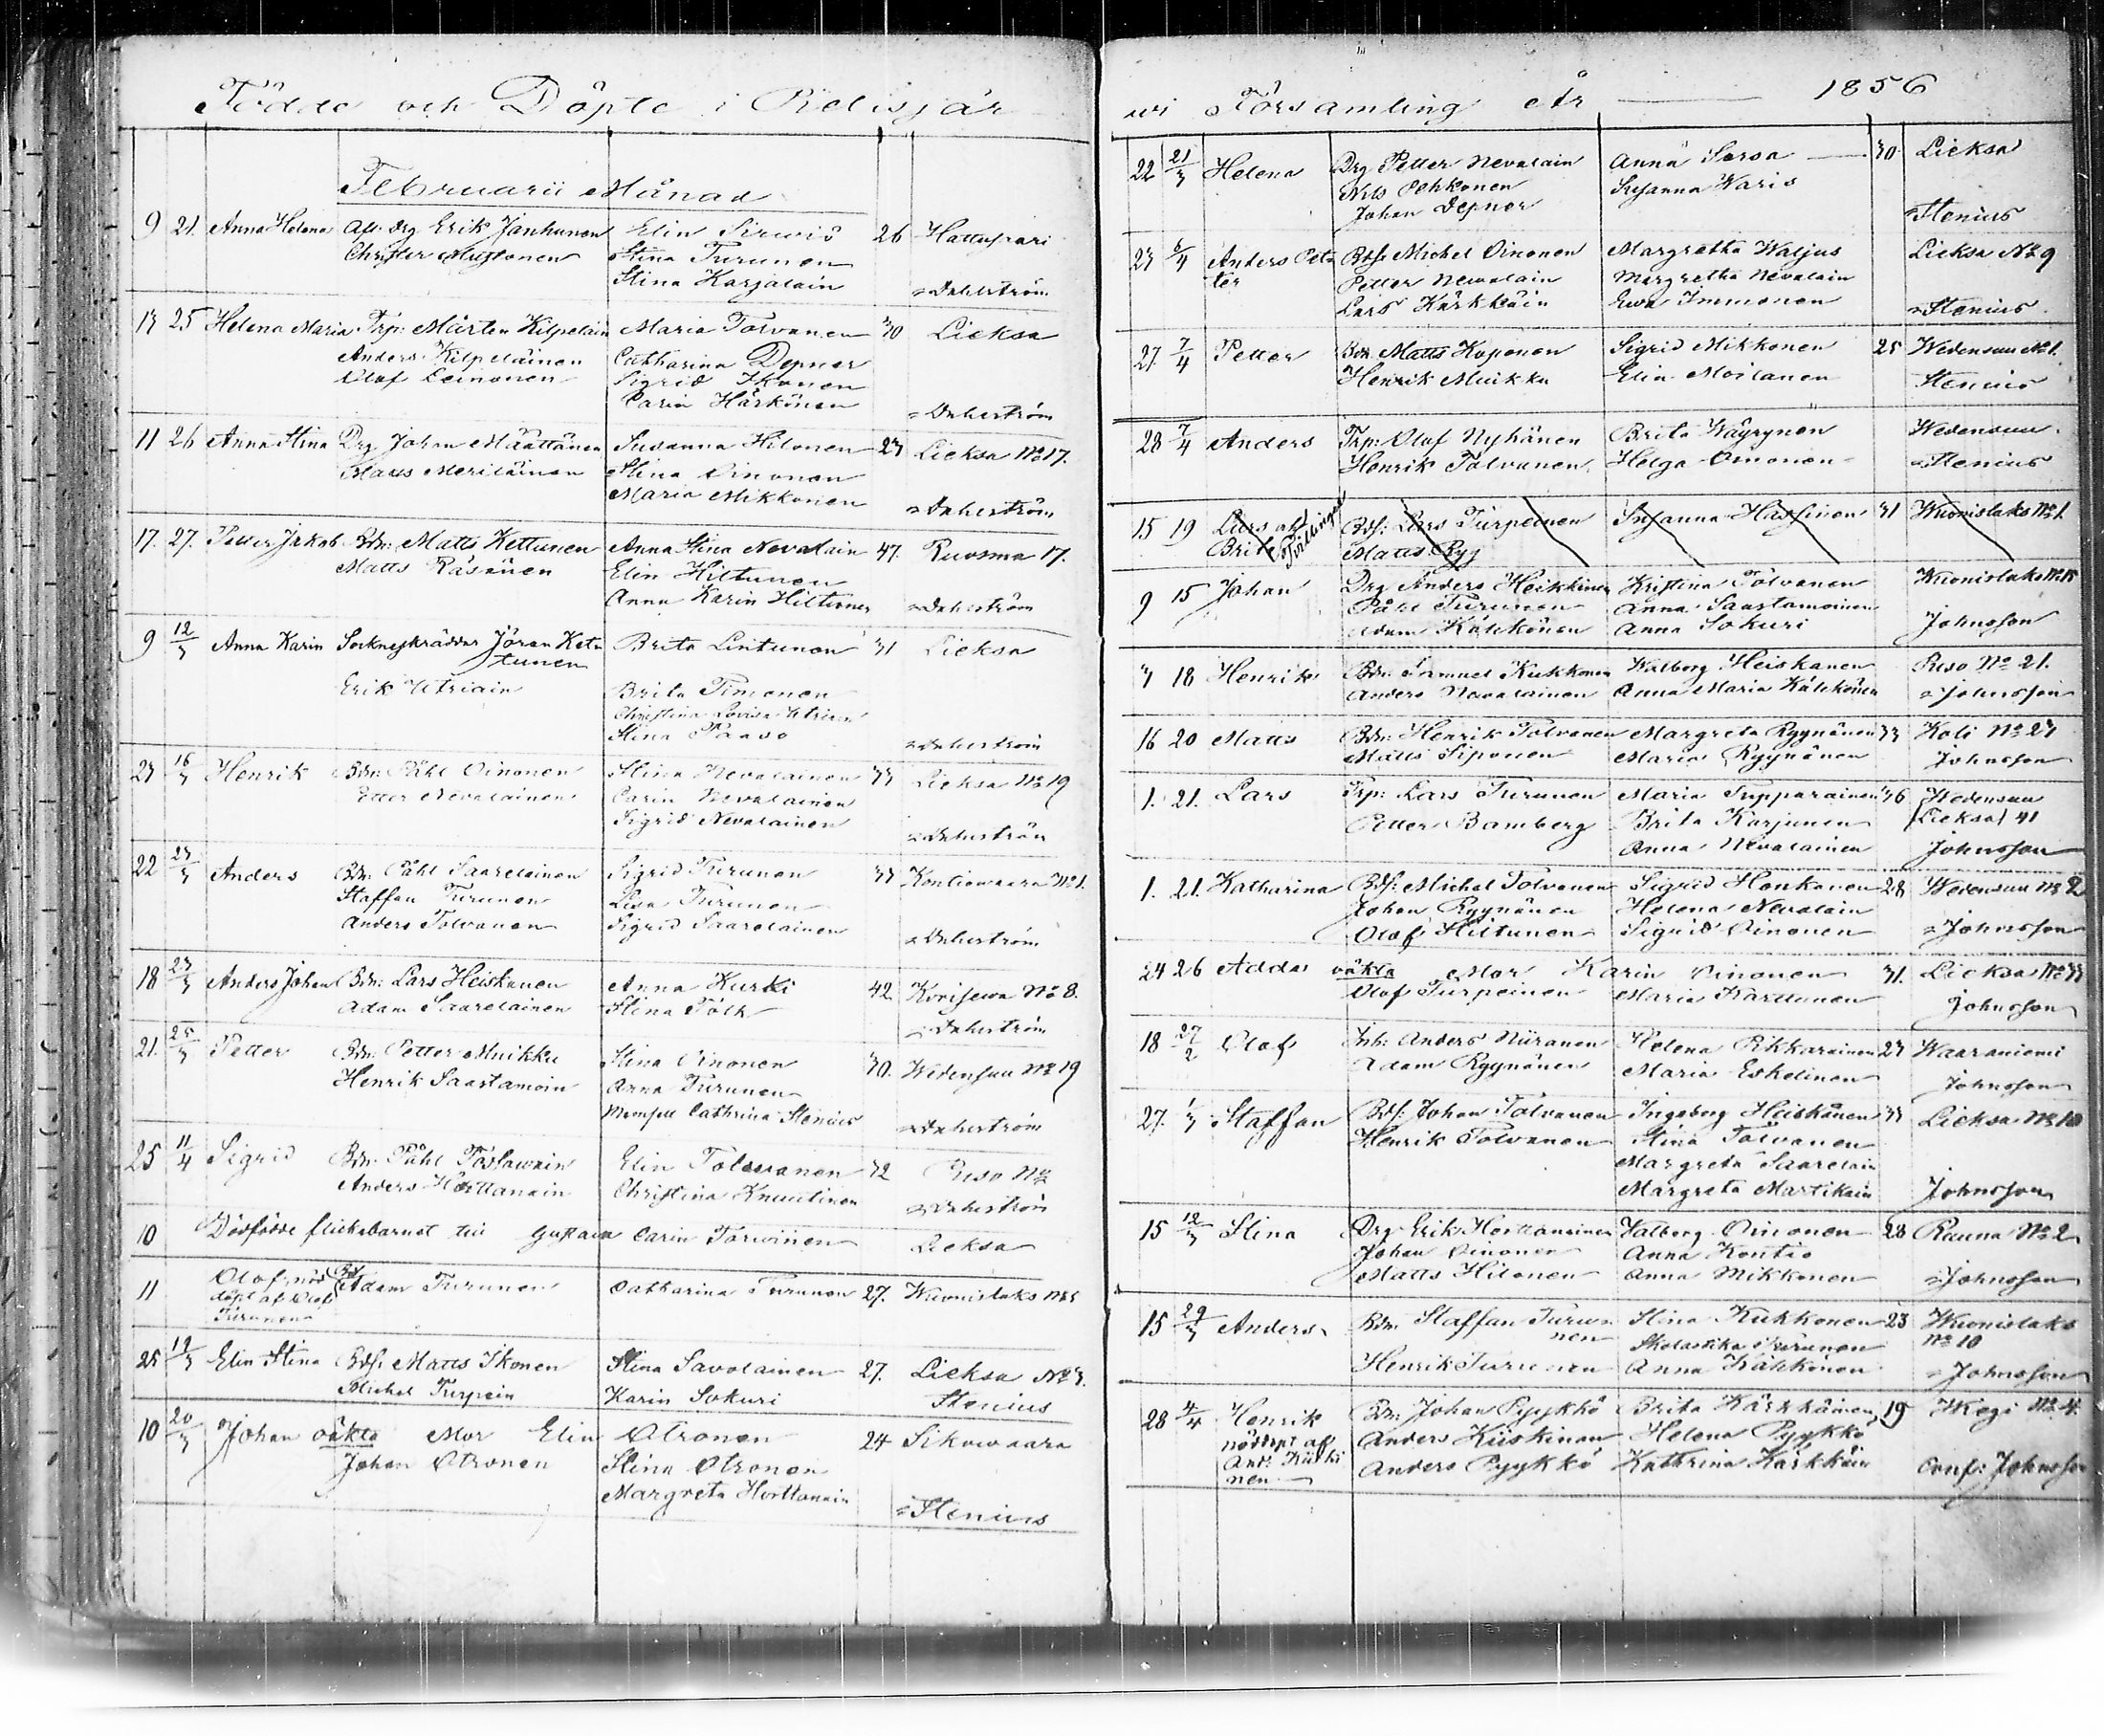 Födde och Döpte i Pielisjär
Februarii Månad
9 21. Anna Helena Afl. Drg Erik Janhunen Elin Sirwiö 26 Hattuspari
Christer Mustonen Stina Turunen
Stina Karjalain Dahlström
13 25 Helena Maria Trp: Mårten Kilpeläin Maria Tolvanen 30 Lieksa
Anders Kilpeläinen Catharina Depner
Olof Leinonen Sigrid Ikonen
Carin Härkönen Dahlström
11 26 Anna Stina Drg Johan Määttänen Susanna Hilonen 23 Lieksa No 17.
Claus Meriläinen Stina Oinonen
Maria Mikkonen Dahlström
17. 27. Petter Jakob Bdn: Matts Kettunen Anna Stina Nevalain 47. Ruosma 17.
Matts Räsänen Elin Hiltunen
Anna Karin Hiltunen Dahlström
9 12/3 Anna Karin Socknesskräddar Jöran Ket= Brita Lintunen 31 Lieksa
tunen
Erik Utriain Brita Timonen
Christina Lovisa Utriain
Stina Paaso Dahlström
23 16/3 Henrik Bdn: Påhl Oinonen Stina Nevalainen 33 Lieksa No 19
Petter Nevalainen Carin Nevalainen
Sigrid Nevalainen Dahlström
22 23/3 Anders Bdn: Påhl Saarelainen Sigrid Turunen 33 Kontiowaara No 1.
Staffan Turunen Lisa Turunen
Anders Tolvanen Sigrid Saarelainen Dahlström
18 23/3 Anders Johan Bdn: Lars Heiskanen Anna Kurki 42 Korisewa No 8.
Adam Saarelainen Stina Tölk Dahlström
21. 25/3 Petter Bdn: Petter Muikku Stina Oinonen 30. Wedensuu No 19
Henrik Saastamoin Anna Turunen
Mamsell Cathrina Stenius Dahlström
25 11/4 Sigrid Bdn: Påhl Elin Tolwanen 32 Ruso No
Anders Horttanain Christina Knuutinen Dahlström
10 Dödfödde flickebarnet till Gustava Carin Torvinen Lieksa
11 Olof, nöd Adam Turunen Catharina Turunen 27. Wuonislaks No 5
döpt af Olof
Turunen
25 13/3 Elin Stina Bds: Matts Ikonen Stina Savolainen 27. Lieksa No 3.
Michel Turpein Karin Sokuri Stenius
10 20/3 Johan oäkta Mor Elin Otronen 24 Sikowaara
Johan Otronen Stina Otronen
Margreta Horttanain
Stenius
wi Församling År 1856
22 21/3 Helena Drg Petter Nevalain Anna Sorsa 30 Lieksa
Nils Pehkonen Susanna Waris
Johan Depner Stenius
23 6/4 Anders Pet= Bds: Michel Oinonen Margretha Waljus Lieksa No 9
ter Petter Newalain Margretha Nevalain
Lars Kärkkäin Ewa Immonen Stenius
27. 7/4 Petter Bdn Matts Koponen Sigrid Mikkonen 25 Wedensuu No 1.
Henrik Muikku Elin Moilanen Stenius
28 7/4 Anders Trp: Olof Nyhänen Brita Wäyrynen Wedensuu
Henrik Tolvanen Helga Oinonen Stenius
15 19 Lars och Tvillingar Bds: Lars Turpeinen Susanna Hassinen 31 Wuonislaks No 1.
Brita Matts Ryy
9 15 Johan Drg Anders Heikkinen Kristina Tolvanen Wuonislaks No 15
Påhl Turunen Anna Saastamoinen
Adam Kähkönen Anna Sokuri Johnsson
3 18 Henrik Bdn: Samuel Kukkonen Walborg Heiskanen Ruso No 21.
Anders Nevalainen Anna Maria Kähkönen Johnsson
16 20 Matts Bdn: Henrik Tolvanen Margreta Ryynänen 33 Koli No 23
Matts Siponen Maria Ryynänen Johnsson
1. 21. Lars Trp: Lars Turunen Maria Tupparainen 36 Wedensuu
Petter Bamberg Brita Karjunen (Lieksa) 41
Anna Nevalainen Johnsson
1. 21. Katharina Bds: Michel Tolvanen Sigrid Honkanen 28 Wedensuu No 2
Johan Ryynänen Helena Nevalain
Olof Hiltunen Sigrid Oinonen Johnsson
24 26 Adda oäkta Mor Karin Oinonen 31. Lieksa No 33
Olof Turpeinen Maria Karttunen Johnsson
18 27/2 Olof Inh: Anders Niiranen Helena Pikkarainen 23 Waaraniemi
Adam Ryynänen Maria Eskelinen Johnsson
27. 1/3 Staffan Bds: Johan Tolvanen Ingeborg Heiskanen 33 Lieksa No 10
Henrik Tolvanen Stina Tolvanen
Margreta Saarelain
Margreta Martikain Johnsson
15 12/3 Stina Drg Erik Horttanainen Valborg Oinonen 28 Rauna No 2
Johan Oinonen Anna Kontio
Matts Hilonen Anna Mikkonen Johnsson
15 29/3 Anders Bdn Staffan Turu= Stina Kukkonen 23 Wuonislaks
nen Skolastika Turunen No 10
Henrik Turunen Anna Kähkönen Johnsson
28 4/4 Henrik Bdn: Johan Pyykkö Brita Kärkkäinen 19 Wegi No 4.
nöddöpt af Anders Kiiskinen Helena Pyykkö
And: Kiiski Anders Pyykkö Kathrina Kärkkäin Conf: Johnsson
nen